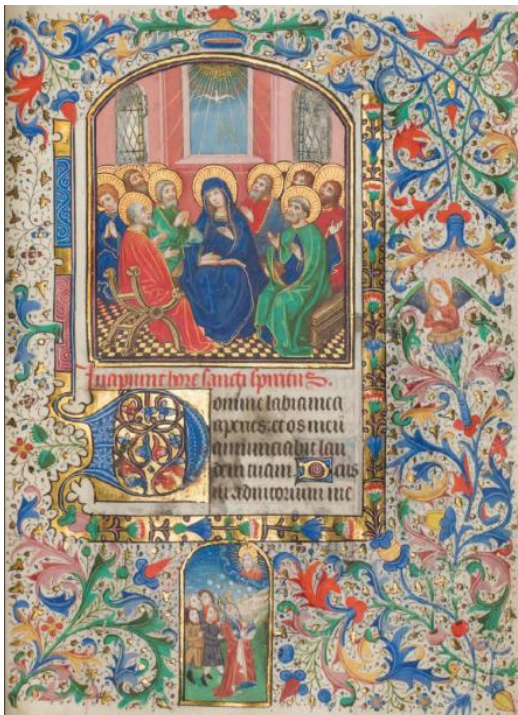 Incipiunt hore sancti spiritus.
Domine labia mea
aperies. et os meu
annunciabit lau
dem tuam Deus
in adiutorium me